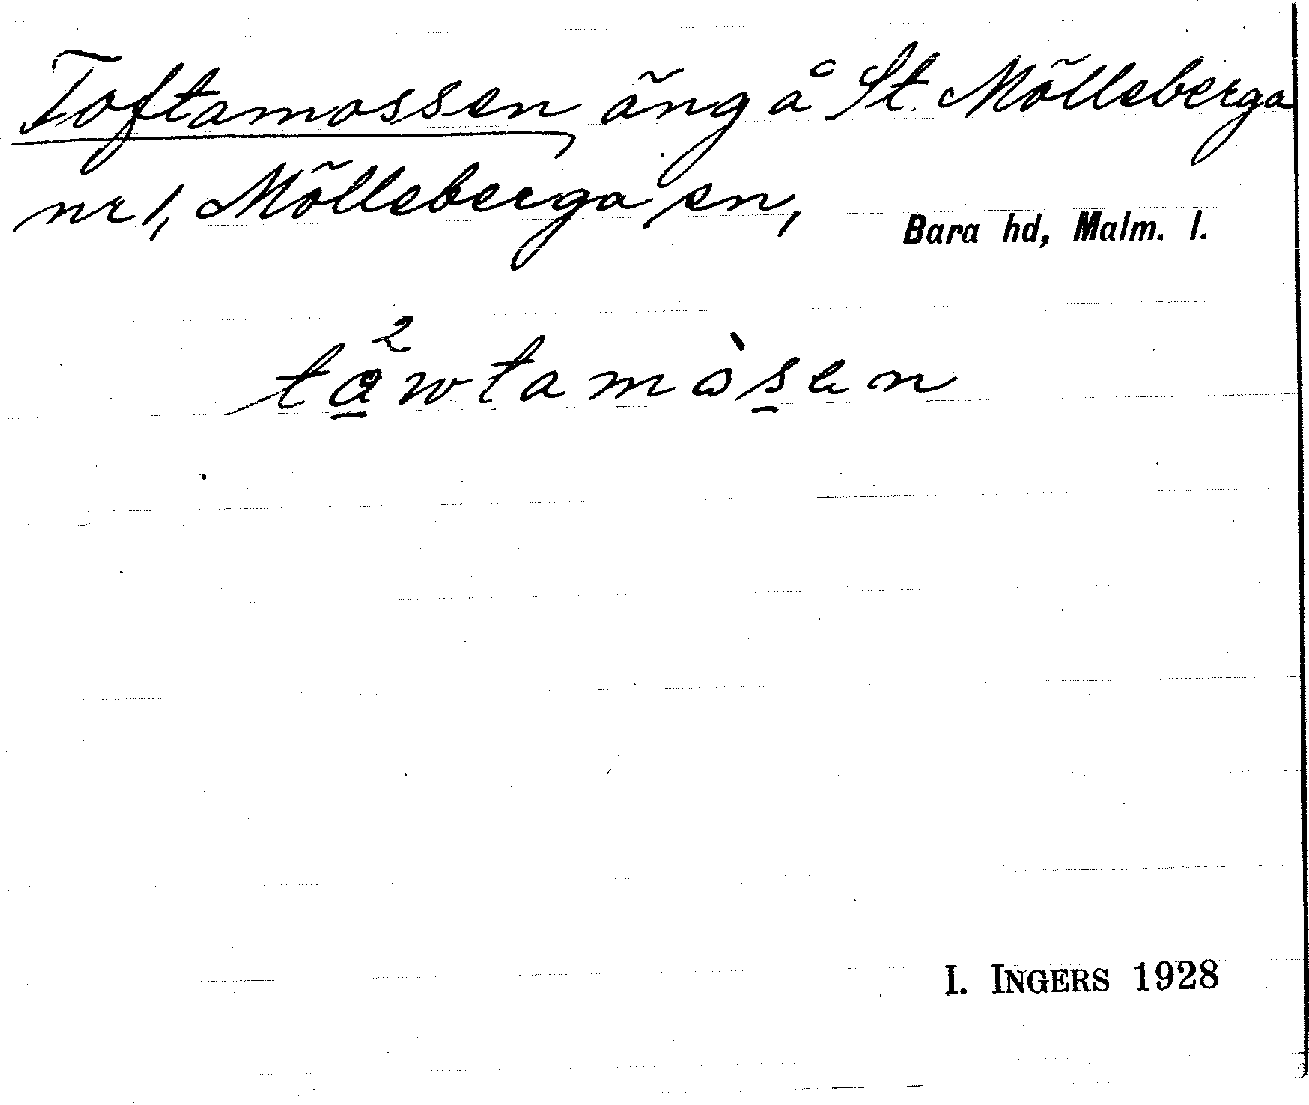 Toftamossen, äng å St. Mölleberga
nr 1, Mölleberga sn, Bara hd, Malm. l.
ta̲²wtamòs̲en
I. INGERS 1928